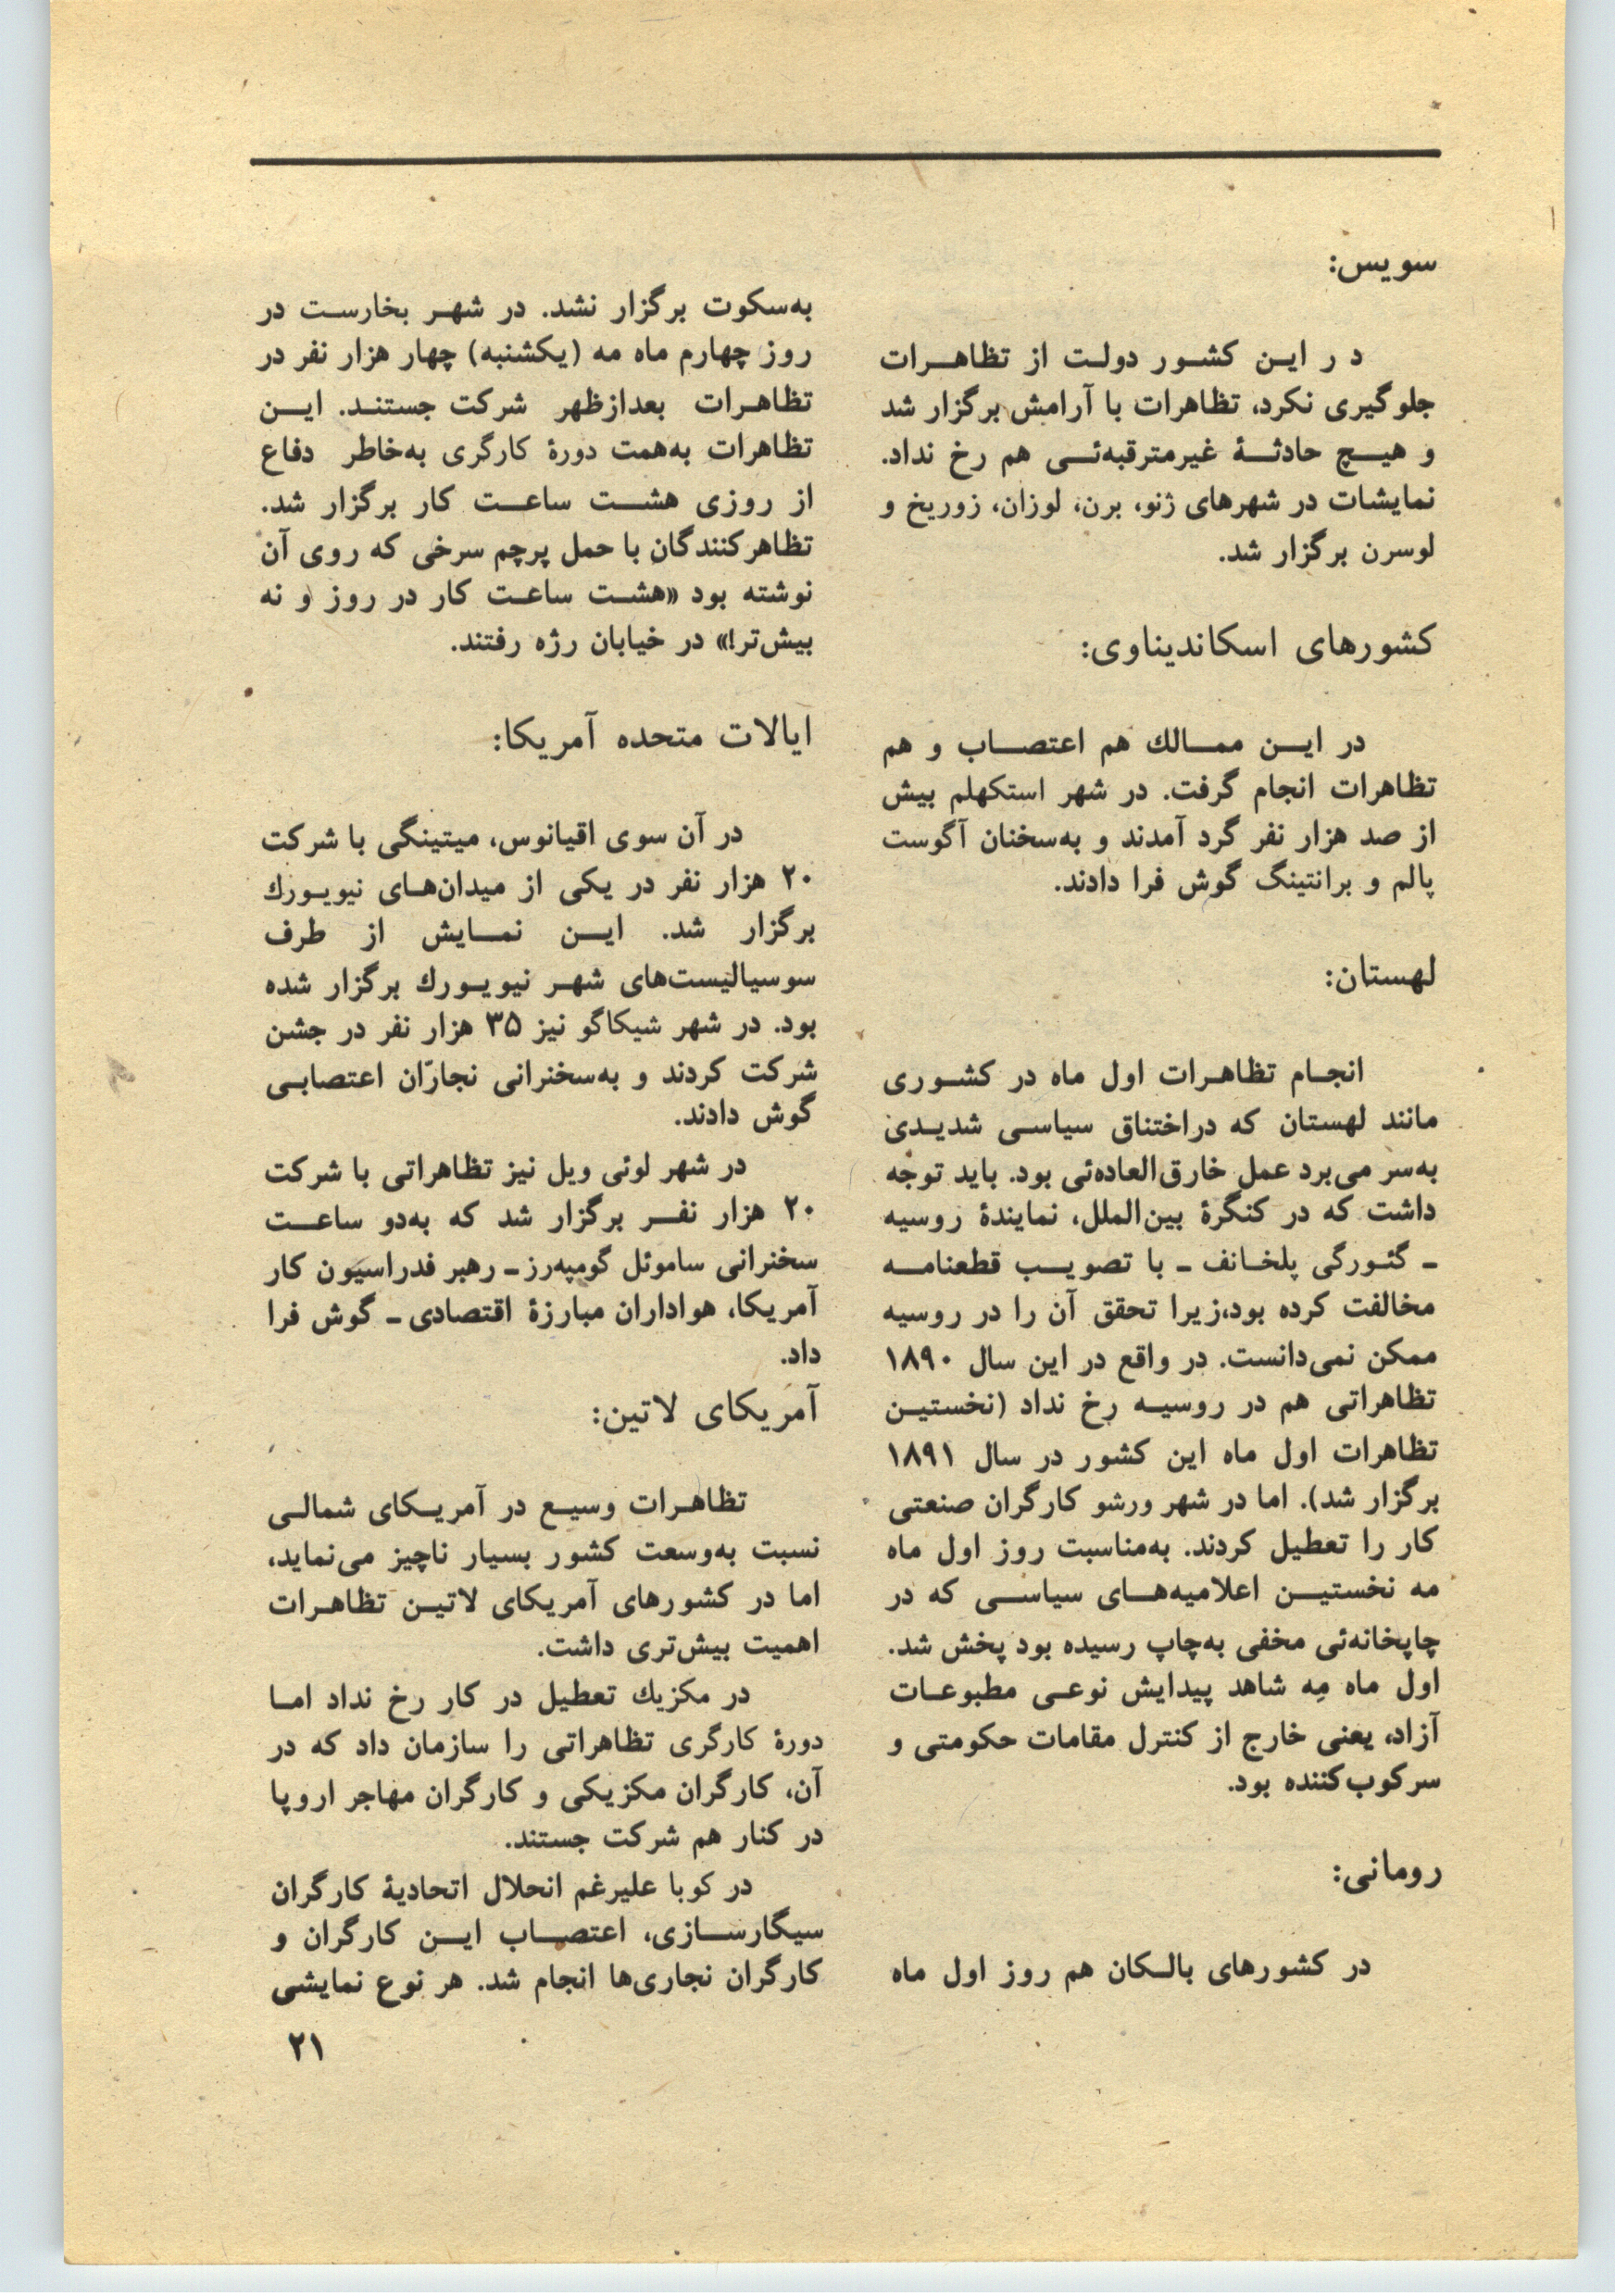 سویس:
د ر این کشور دولت از تظاهرات
جلوگیری نکرد، تظاهرات با آرامش برگزار شد
و هیچ حادثهٔ غیرمترقبه‌ئی هم رخ نداد.
نمایشات در شهرهای ژنو، برن، لوزان، زوریخ و
لوسرن برگزار شد.
کشورهای اسکاندیناوی:
در این ممالك هم اعتصاب و هم
تظاهرات انجام گرفت. در شهر استکهلم بیش
از صد هزار نفر گرد آمدند و به‌سخنان آگوست
پالم و برانتینگ گوش فرا دادند.
لهستان:
انجام تظاهرات اول ماه در کشوری
مانند لهستان که دراختناق سیاسی شدیدی
به‌سر می‌برد عمل خارق‌العاده‌ئی بود. باید توجه
داشت که در کنگرهٔ بین‌الملل، نمایندهٔ روسیه
ـ گئورگی پلخانف ـ با تصویب قطعنامه
مخالفت کرده بود،زیرا تحقق آن را در روسیه
ممکن نمی‌دانست. در واقع در این سال ۱۸۹۰
تظاهراتی هم در روسیه رخ نداد (نخستین
تظاهرات اول ماه این کشور در سال ۱۸۹۱
برگزار شد). اما در شهر ورشو کارگران صنعتی
کار را تعطیل کردند. به‌مناسبت روز اول ماه
مه نخستین اعلامیه‌های سیاسی که در
چاپخانه‌ئی مخفی به‌چاپ رسیده بود پخش شد.
اول ماه مِه شاهد پیدایش نوعی مطبوعات
آزاد، یعنی خارج از کنترل مقامات حکومتی و
سرکوب‌کننده بود.
رومانی:
در کشورهای بالکان هم روز اول ماه
به‌سکوت برگزار نشد. در شهر بخارست در
روز چهارم ماه مه (یکشنبه) چهار هزار نفر در
تظاهرات بعدازظهر شرکت جستند. این
تظاهرات به‌همت دورهٔ کارگری به‌خاطر دفاع
از روزی هشت ساعت کار برگزار شد.
تظاهرکنندگان با حمل پرچم سرخی که روی آن
نوشته بود «هشت ساعت کار در روز و نه
بیش‌تر!» در خیابان رژه رفتند.
ایالات متحده آمریکا:
در آن سوی اقیانوس، میتینگی با شرکت
۲۰ هزار نفر در یکی از میدان‌های نیویورك
برگزار شد. این نمایش از طرف
سوسیالیست‌های شهر نیویورك برگزار شده
بود. در شهر شیکاگو نیز ۳۵ هزار نفر در جشن
شرکت کردند و به‌سخنرانی نجارّان اعتصابی
گوش دادند.
در شهر لوئی ویل نیز تظاهراتی با شرکت
۲۰ هزار نفر برگزار شد که به‌دو ساعت
سخنرانی ساموئل گومپه‌رز ـ رهبر فدراسیون کار
آمریکا، هواداران مبارزهٔ اقتصادی ـ گوش فرا
داد.
آمریکای لاتین:
تظاهرات وسیع در آمریکای شمالی
نسبت به‌وسعت کشور بسیار ناچیز می‌نماید،
اما در کشورهای آمریکای لاتین تظاهرات
اهمیت بیش‌تری داشت.
در مکزیك تعطیل در کار رخ نداد اما
دورهٔ کارگری تظاهراتی را سازمان داد که در
آن، کارگران مکزیکی و کارگران مهاجر اروپا
در کنار هم شرکت جستند.
در کوبا علیرغم انحلال اتحادیهٔ کارگران
سیگارسازی، اعتصاب این کارگران و
کارگران نجاری‌ها انجام شد. هر نوع نمایشی
۲۱